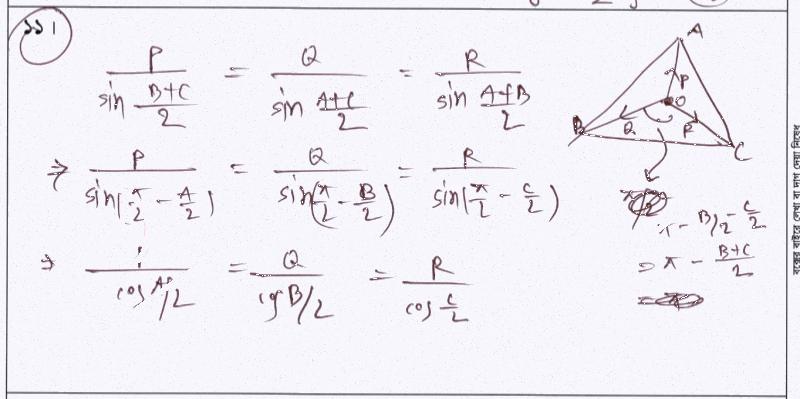 ১১।
P/(sin (B+C)/2) = Q/(sin (A+C)/2) = R/(sin (A+B)/2)
⇒ P/(sin(π/2 - A/2)) = Q/(sin(π/2 - B/2)) = R/(sin(π/2 - C/2))
⇒ /(cos A/2) = Q/(cos B/2) = R/(cos C/2)
A
P
O
B
Q
R
C
π - B/2 - C/2
= π - (B+C)/2
বক্সের বাইরে লেখা বা দাগ দেয়া নিষেধ